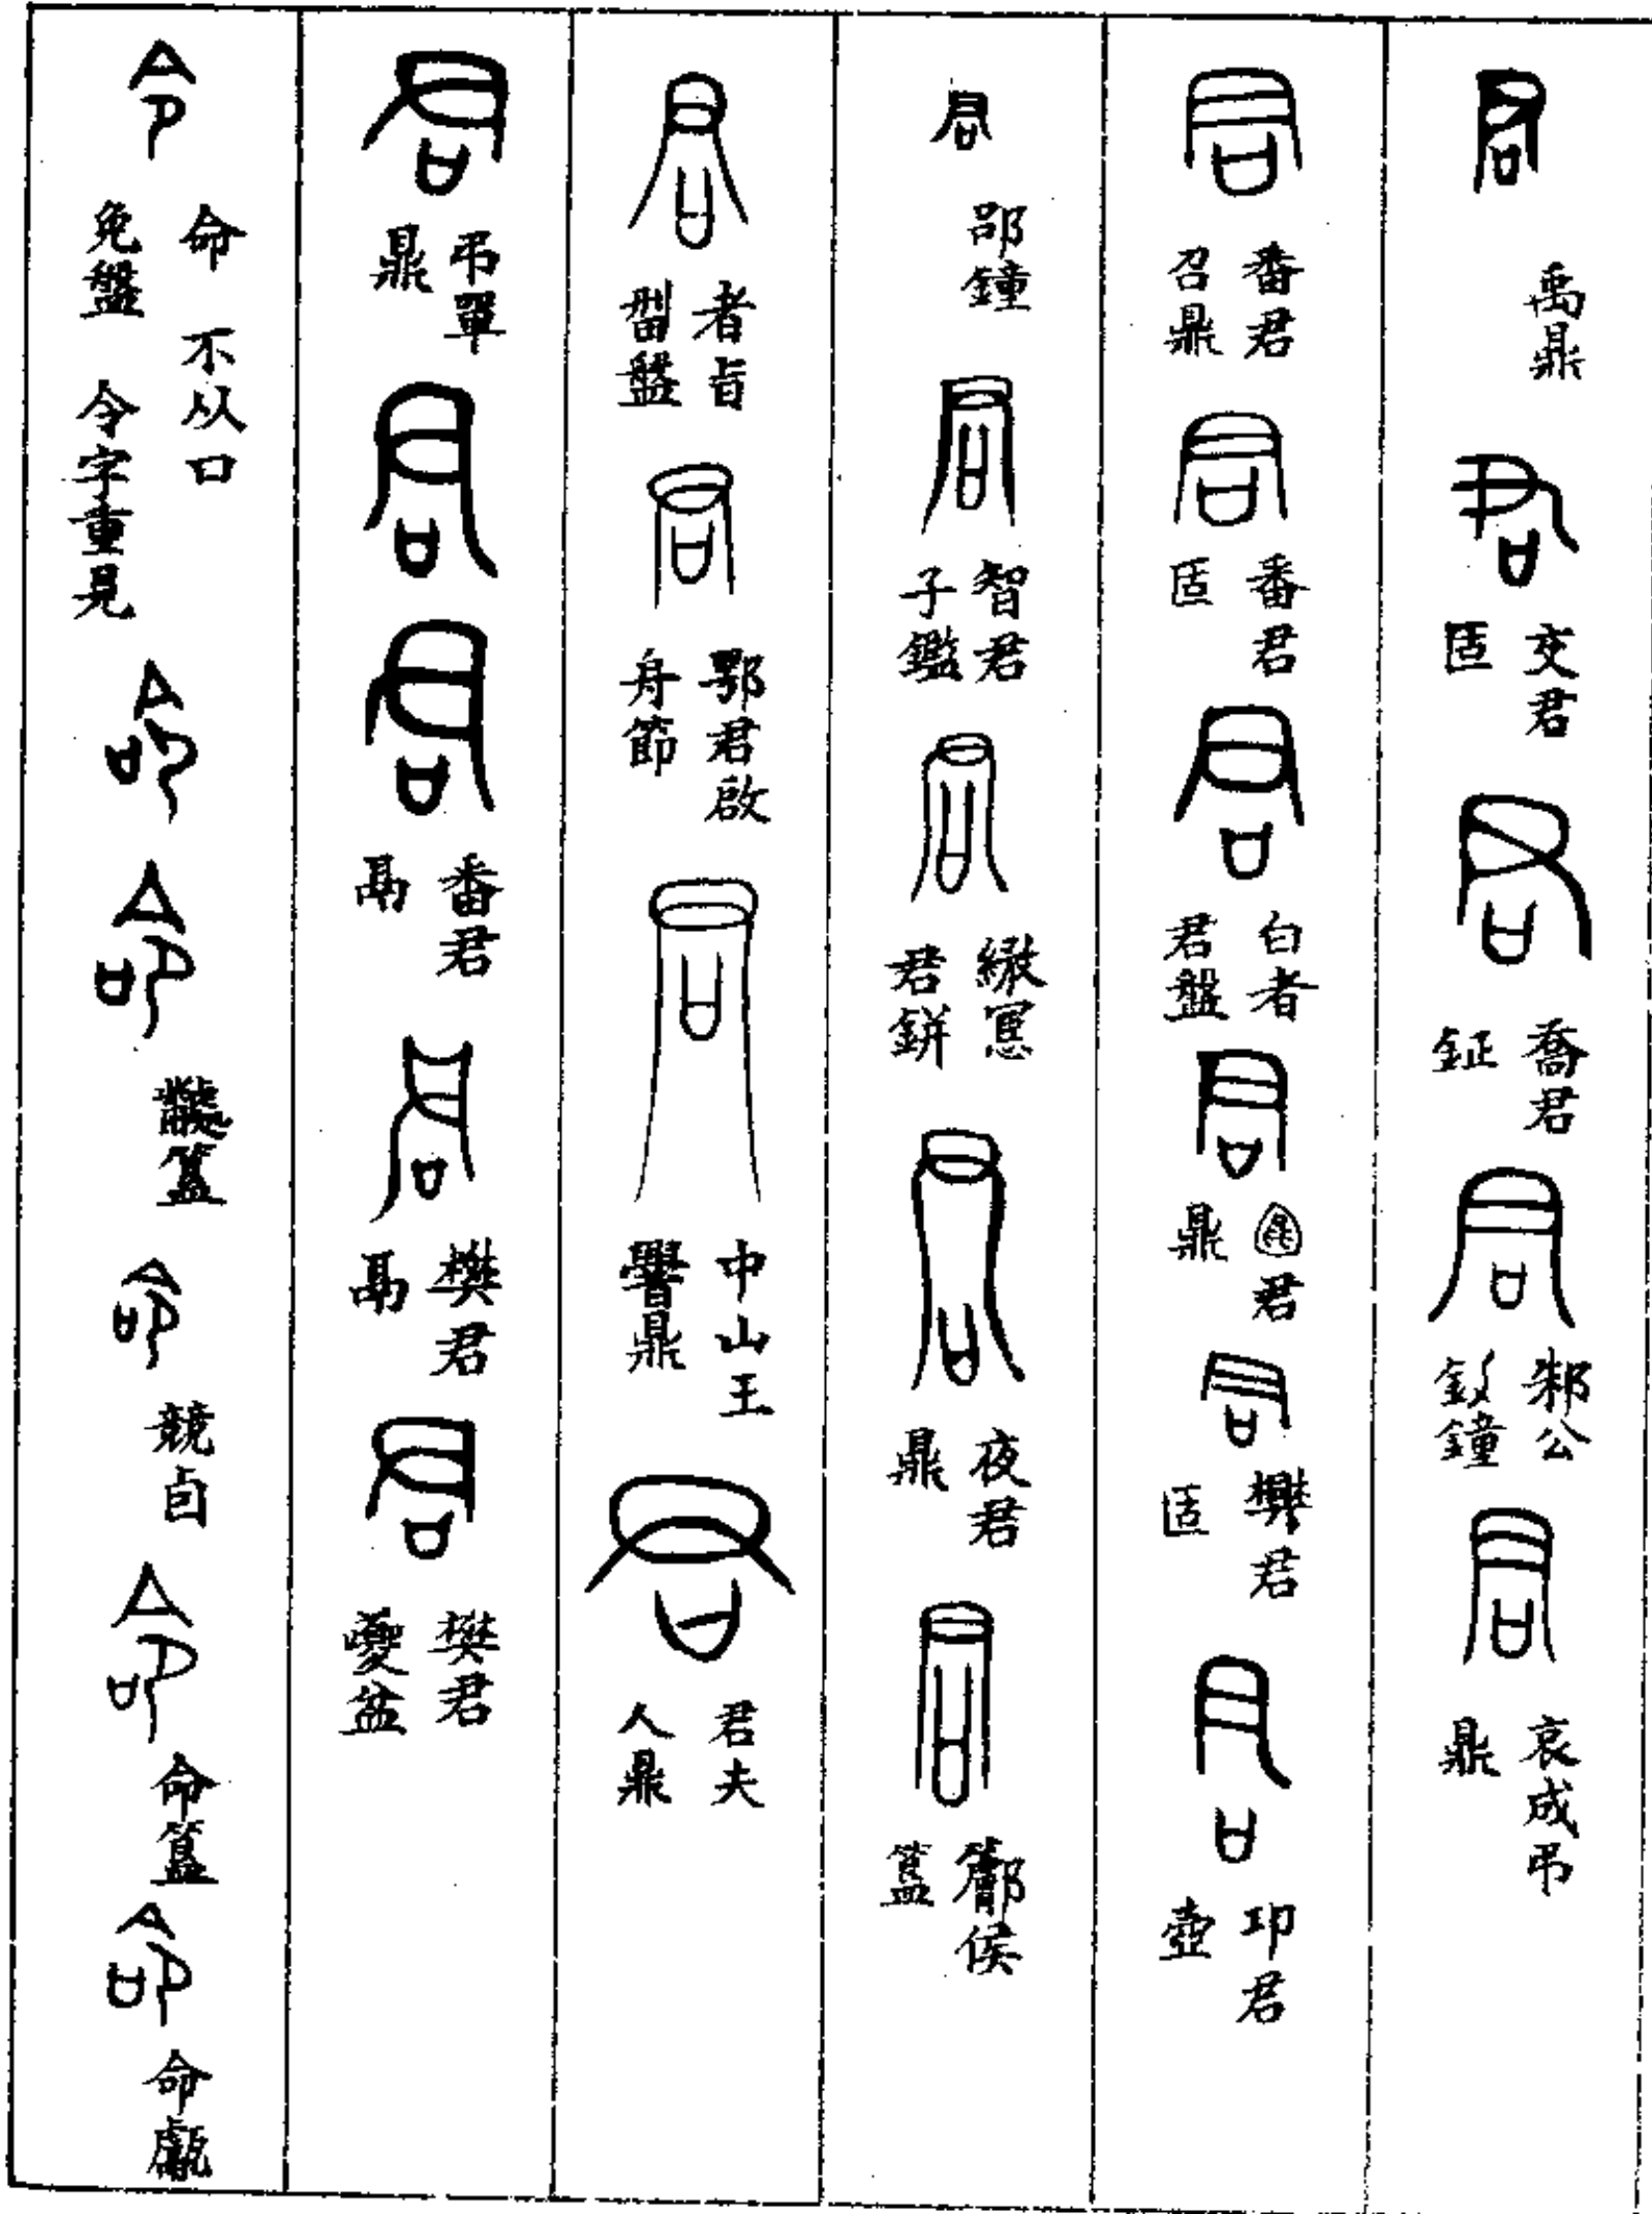 禹鼎 交君匜 喬君鉦 邾公釛鐘 哀成弔鼎
番君召鼎 番君匜 白者君盤 君鼎 樊君匜 邛君壺
郘鐘 智君子鑑 君鉼 夜君鼎 侯簋
者旨盤 鄂君啟舟節 中山王鼎 君夫人鼎
弔單鼎 番君鬲 樊君鬲 樊君夔盆
命 不从口 免盤 令字重見 簋 競卣 命簋 命甗